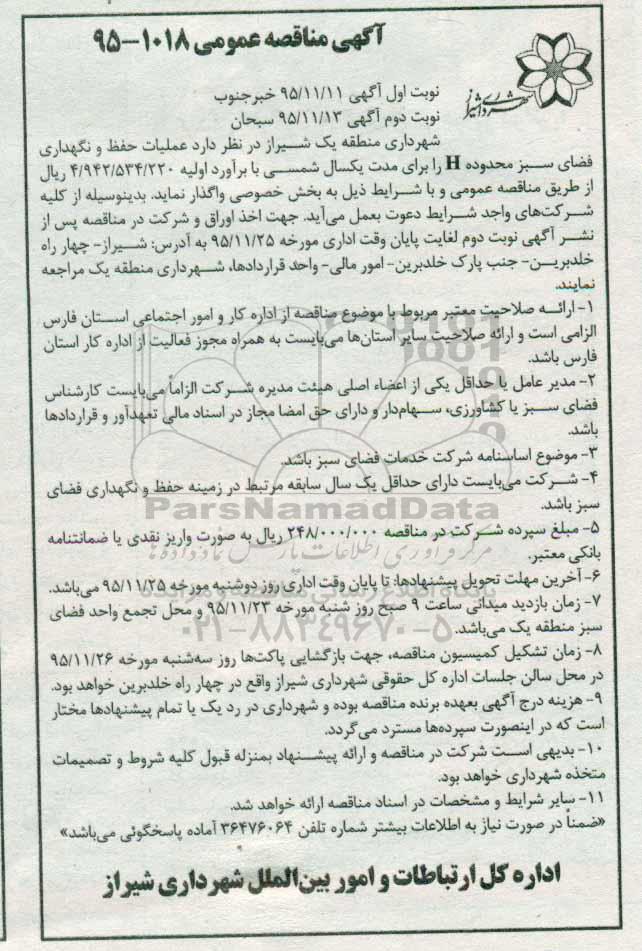 آگهی مناقصه عمومی ۱۰۱۸-۹۵
شهرداری شیراز
نوبت اول آگهی ۹۵/۱۱/۱۱ خبرجنوب
نوبت دوم آگهی ۹۵/۱۱/۱۳ سبحان
شهرداری منطقه یک شیراز در نظر دارد عملیات حفظ و نگهداری
فضای سبز محدوده H را برای مدت یکسال شمسی با برآورد اولیه ۴/۹۴۲/۵۳۴/۲۲۰ ریال
از طریق مناقصه عمومی و با شرایط ذیل به بخش خصوصی واگذار نماید. بدینوسیله از کلیه
شرکت‌های واجد شرایط دعوت بعمل می‌آید. جهت اخذ اوراق و شرکت در مناقصه پس از
نشر آگهی نوبت دوم لغایت پایان وقت اداری مورخه ۹۵/۱۱/۲۵ به آدرس: شیراز- چهار راه
خلدبرین- جنب پارک خلدبرین- امور مالی- واحد قراردادها، شهرداری منطقه یک مراجعه
نمایند.
۱- ارائه صلاحیت معتبر مربوط با موضوع مناقصه از اداره کار و امور اجتماعی استان فارس
الزامی است و ارائه صلاحیت سایر استان‌ها می‌بایست به همراه مجوز فعالیت از اداره کار استان
فارس باشد.
۲- مدیر عامل یا حداقل یکی از اعضاء اصلی هیئت مدیره شرکت الزاماً می‌بایست کارشناس
فضای سبز یا کشاورزی، سهام‌دار و دارای حق امضا مجاز در اسناد مالی تعهدآور و قراردادها
باشد.
۳- موضوع اساسنامه شرکت خدمات فضای سبز باشد.
۴- شرکت می‌بایست دارای حداقل یک سال سابقه مرتبط در زمینه حفظ و نگهداری فضای
سبز باشد.
ParsNamadData
۵- مبلغ سپرده شرکت در مناقصه ۲۴۸/۰۰۰/۰۰۰ ریال به صورت واریز نقدی یا ضمانتنامه
بانکی معتبر.
۶- آخرین مهلت تحویل پیشنهادها: تا پایان وقت اداری روز دوشنبه مورخه ۹۵/۱۱/۲۵ می‌باشد.
۷- زمان بازدید میدانی ساعت ۹ صبح روز شنبه مورخه ۹۵/۱۱/۲۳ و محل تجمع واحد فضای
سبز منطقه یک می‌باشد.
۰۲۱-۸۸۳۴۹۶۷۰-۵
۸- زمان تشکیل کمیسیون مناقصه، جهت بازگشایی پاکت‌ها روز سه‌شنبه مورخه ۹۵/۱۱/۲۶
در محل سالن جلسات اداره کل حقوقی شهرداری شیراز واقع در چهار راه خلدبرین خواهد بود.
۹- هزینه درج آگهی بعهده برنده مناقصه بوده و شهرداری در رد یک یا تمام پیشنهادها مختار
است که در اینصورت سپرده‌ها مسترد می‌گردد.
۱۰- بدیهی است شرکت در مناقصه و ارائه پیشنهاد بمنزله قبول کلیه شروط و تصمیمات
متخذه شهرداری خواهد بود.
۱۱- سایر شرایط و مشخصات در اسناد مناقصه ارائه خواهد شد.
«ضمناً در صورت نیاز به اطلاعات بیشتر شماره تلفن ۳۶۴۷۶۰۶۴ آماده پاسخگوئی می‌باشد»
اداره کل ارتباطات و امور بین‌الملل شهرداری شیراز